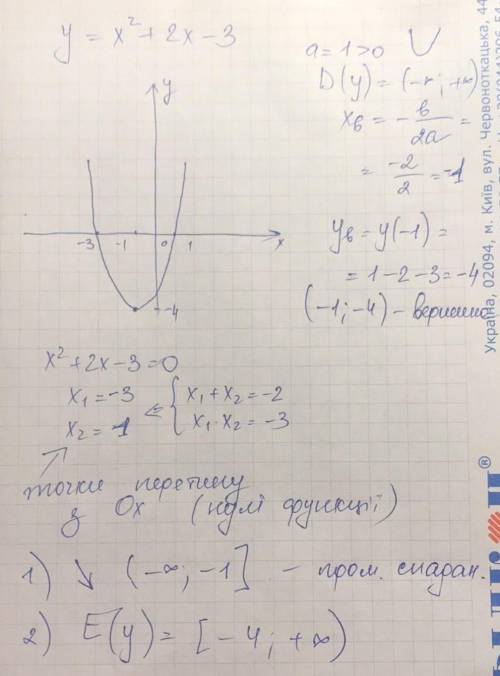 y = x² + 2x - 3
a = 1 > 0
D(y) = (-∞; +∞)
xв = - в/2a =
= -2/2 = -1
yв = y(-1) =
= 1 - 2 - 3 = -4
(-1; -4) - вершина
y
-3 -1 0 1 x
-4
x² + 2x - 3 = 0
x₁ = -3
x₂ = 1
⇐ { x₁ + x₂ = -2
x₁ · x₂ = -3
точки перетину
з Ox (нулі функції)
1) ↘ (-∞; -1] - пром. спадан.
2) E(y) = [-4; +∞)
Україна, 02094, м. Київ, вул. Червоноткацька, 44
®